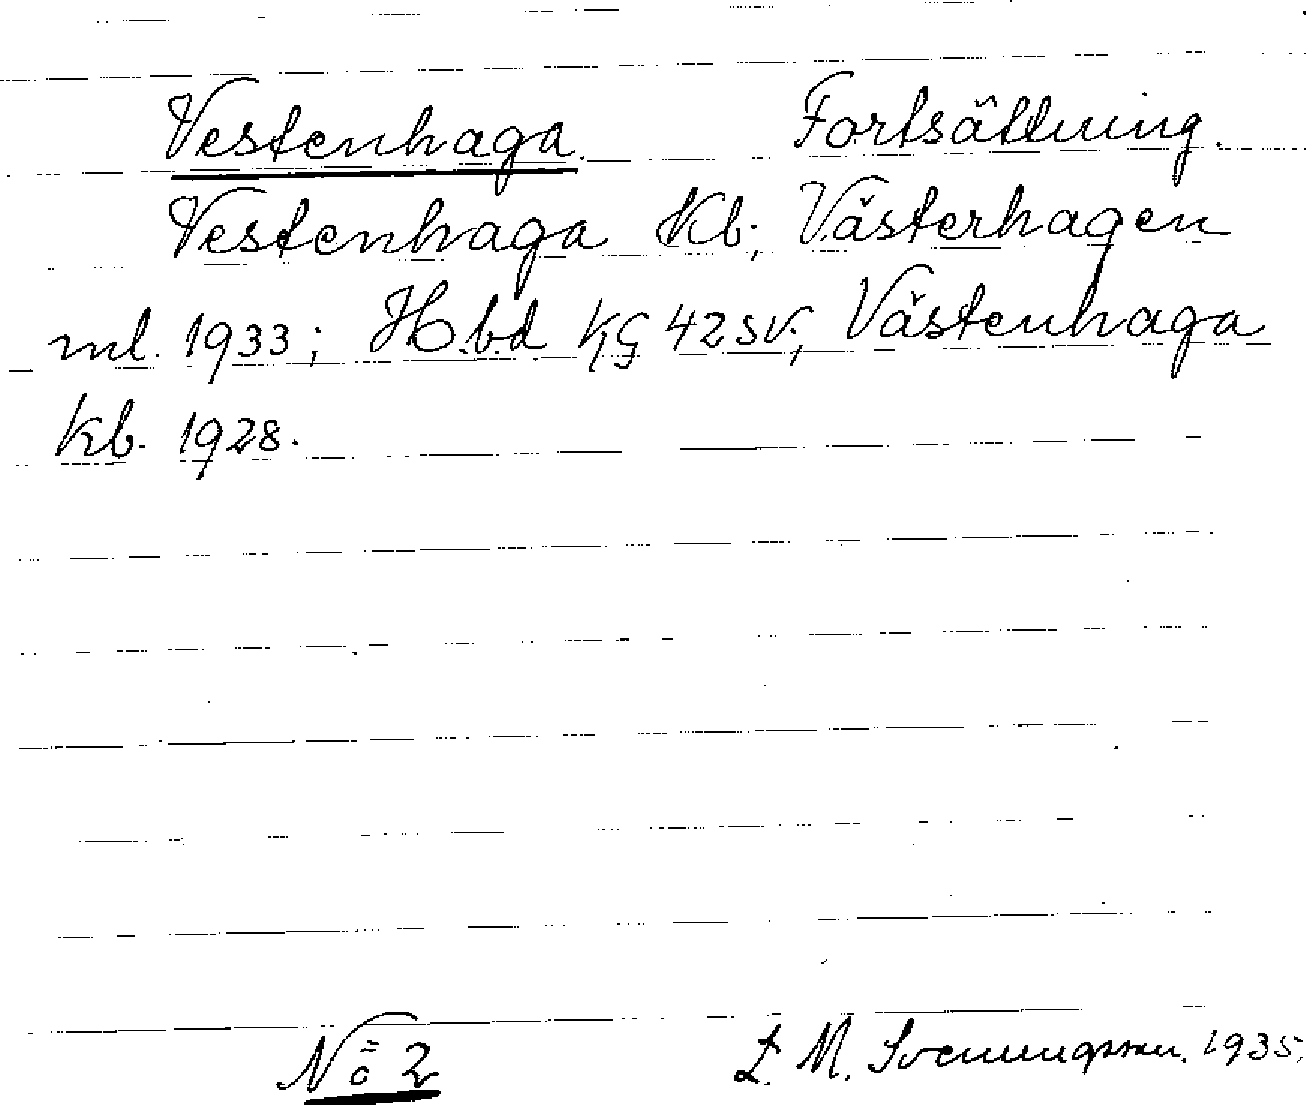 Vestenhaga. Fortsättning.
Vestenhaga kb; Västerhagen
ml. 1933; H.b.d KG 42 SV; Västenhaga
kb. 1928.
No 2 L. M. 1935.